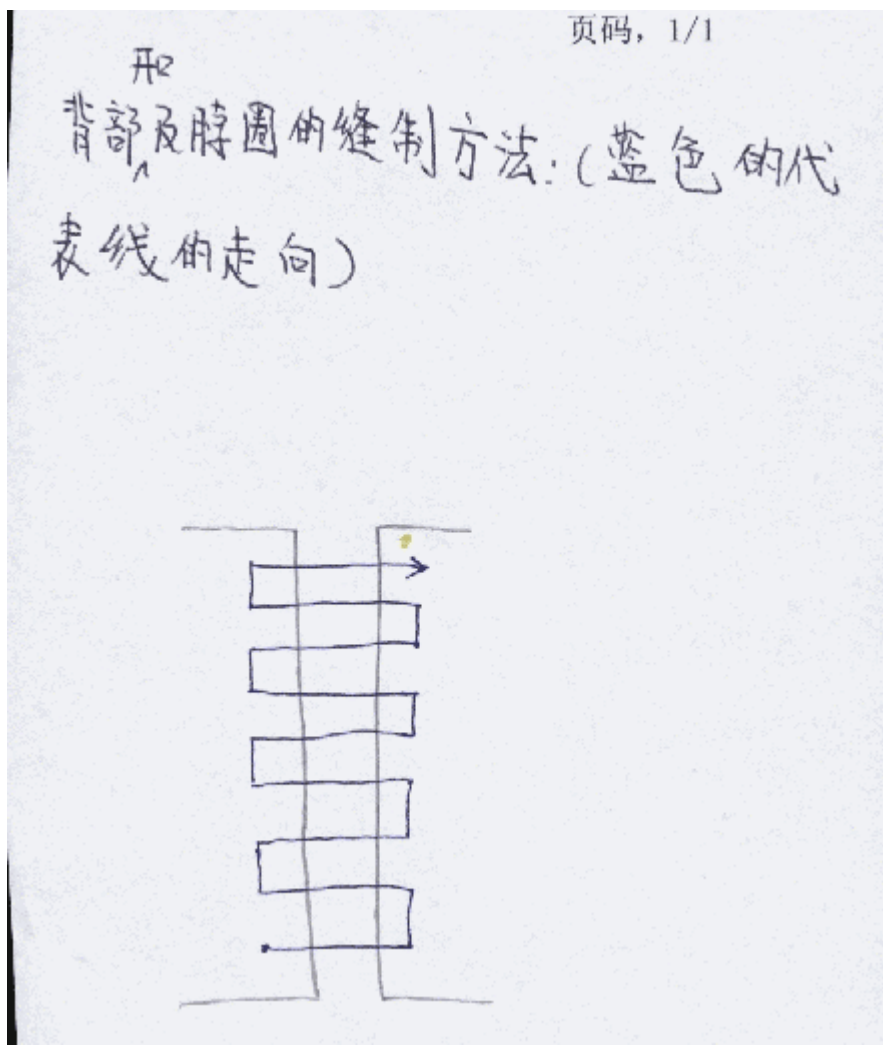 页码，1/1
开口
背部及脖圈的缝制方法:(蓝色的代
表线的走向)